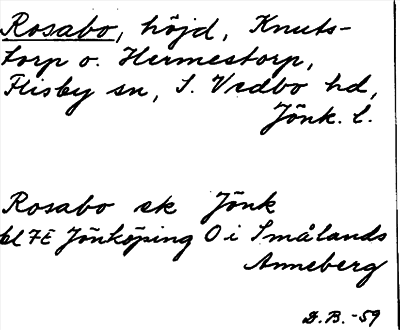 Rosabo, höjd, Knuts-
torp o. Hermestorp,
Flisby sn, S. Vedbo hd,
Jönk. l.
Rosabo ek Jönk
bl 7E Jönköping O i Smålands
Anneberg
D. B. -59